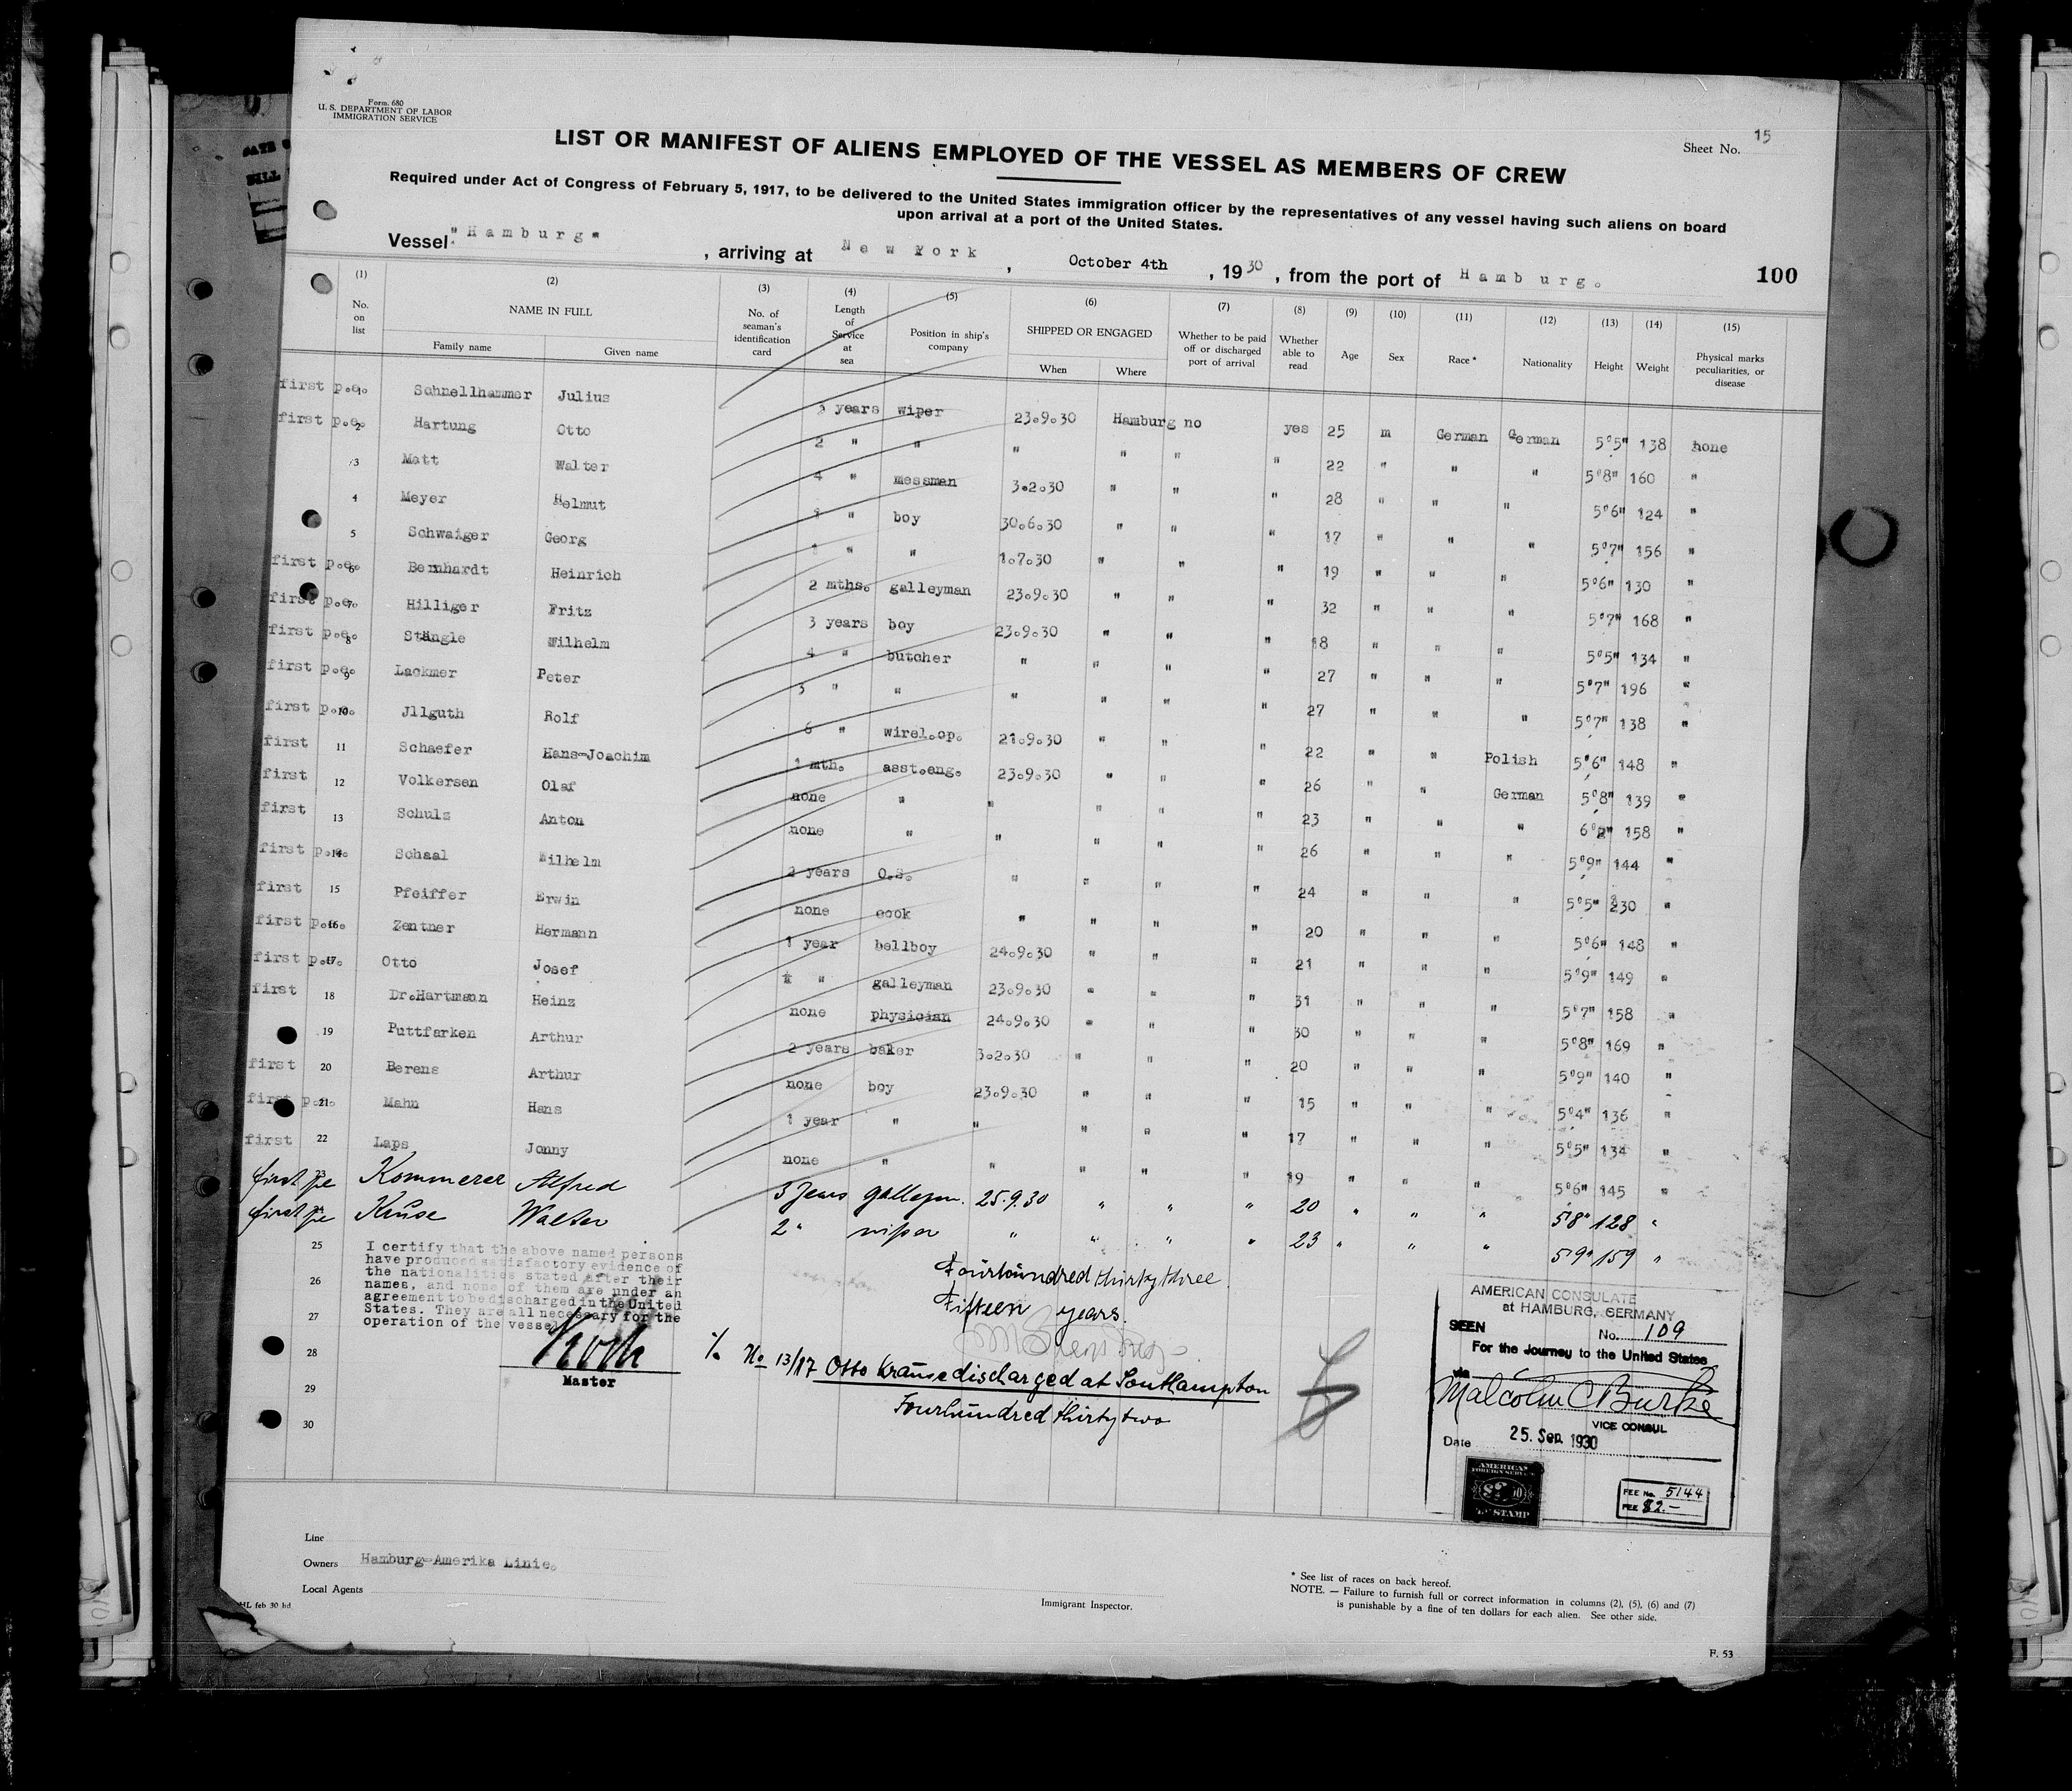 Form. 680
U. S. DEPARTMENT OF LABOR
IMMIGRATION SERVICE
Sheet No. 15
LIST OR MANIFEST OF ALIENS EMPLOYED OF THE VESSEL AS MEMBERS OF CREW
Required under Act of Congress of February 5, 1917, to be delivered to the United States immigration officer by the representatives of any vessel having such aliens on board
upon arrival at a port of the United States.
Vessel "Hamburg" , arriving at New York , October 4th , 1930 , from the port of Hamburg. 100
(1) No. on list (2) NAME IN FULL Family name Given name (3) No. of seaman's identification card (4) Length of Service at sea (5) Position in ship's company (6) SHIPPED OR ENGAGED When Where (7) Whether to be paid off or discharged port of arrival (8) Whether able to read (9) Age (10) Sex (11) Race * (12) Nationality (13) Height (14) Weight (15) Physical marks peculiarities, or disease
first p.e. 1 Schnellhammer Julius years wiper 23.9.30 Hamburg no yes 25 m German German 5'5" 138 none
first p.e. 2 Hartung Otto 2 " " " " " " 22 " " " 5'8" 160 "
3 Matt Walter 4 " messman 3.2.30 " " " 28 " " " 5'6" 124 "
4 Meyer Helmut " boy 30.6.30 " " " 17 " " " 5'7" 156 "
5 Schwaiger Georg 1 " " 1.7.30 " " " 19 " " " 5'6" 130 "
first p.e. 6 Bernhardt Heinrich 2 mths. galleyman 23.9.30 " " " 32 " " " 5'7" 168 "
first p.e. 7 Hilliger Fritz 3 years boy 23.9.30 " " " 18 " " " 5'5" 134 "
first p.e. 8 Stängle Wilhelm 4 " butcher " " " " 27 " " " 5'7" 196 "
first p.e. 9 Lackmer Peter 3 " " " " " " 27 " " " 5'7" 138 "
first p.e. 10 Jllguth Rolf 6 " wirel.op. 21.9.30 " " " 22 " " Polish 5'6" 148 "
first 11 Schaefer Hans-Joachim 1 mth. asst.eng. 23.9.30 " " " 26 " " German 5'8" 139 "
first 12 Volkersen Olaf none " " " " " 23 " " " 6'2" 158 "
first 13 Schulz Anton none " " " " " 26 " " " 5'9" 144 "
first p.e. 14 Schaal Wilhelm 2 years O.S. " " " " 24 " " " 5'5" 230 "
first 15 Pfeiffer Erwin none cook " " " " 20 " " " 5'6" 148 "
first p.e. 16 Zentner Hermann 1 year bellboy 24.9.30 " " " 21 " " " 5'9" 149 "
first p.e. 17 Otto Josef " galleyman 23.9.30 " " " 31 " " " 5'7" 158 "
first 18 Dr.Hartmann Heinz none physician 24.9.30 " " " 30 " " " 5'8" 169 "
19 Puttfarken Arthur 2 years baker 3.2.30 " " " 20 " " " 5'9" 140 "
first 20 Berens Arthur none boy 23.9.30 " " " 15 " " " 5'4" 136 "
first p.e. 21 Mahn Hans 1 year " " " " " 17 " " " 5'5" 134 "
first 22 Laps Jonny none " " " " " 19 " " " 5'6" 145 "
first pe 23 Kommerer Alfred 3 Jears galleym. 25.9.30 " " " 20 " " " 5'8" 128 "
first pe Kruse Walter 2 " " " " " 23 " " " 5'9" 159 "
25
26
27
28
29
30
I certify that the above named persons
have produced satisfactory evidence of
the nationalities stated after their
names, and none of them are under an
agreement to be discharged in the United
States. They are all necessary for the
operation of the vessel
Master
Fourhundred thirty three
Fifteen years.
No 13/17 Otto Krause discharged at Southampton
Fourhundred thirty two
AMERICAN CONSULATE
at HAMBURG, GERMANY
SEEN No. 109
For the Journey to the United States
via
Malcolm C Burke
VICE CONSUL
Date 25. Sep. 1930
AMERICAN
FOREIGN SERVICE
STAMP
FEE No. 5144
FEE $2.-
Line
Owners Hamburg-Amerika Linie.
Local Agents
HL feb 30 hd
Immigrant Inspector.
* See list of races on back hereof.
NOTE. — Failure to furnish full or correct information in columns (2), (5), (6) and (7)
is punishable by a fine of ten dollars for each alien. See other side.
F. 53